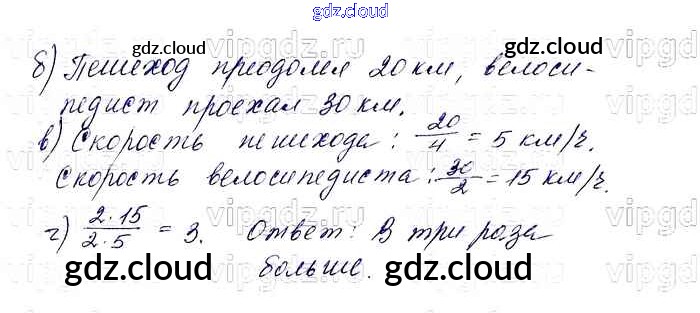 gdz.cloud
gdz.cloud gdz.cloud
б) Пешеход преодолел 20 км, велоси-
педист проехал 30 км.
в) Скорость пешехода: 20/4 = 5 км/ч.
скорость велосипедиста: 30/2 = 15 км/ч.
г) 2·15/2·5 = 3. Ответ: В три раза
больше.
gdz.cloud gdz.cloud